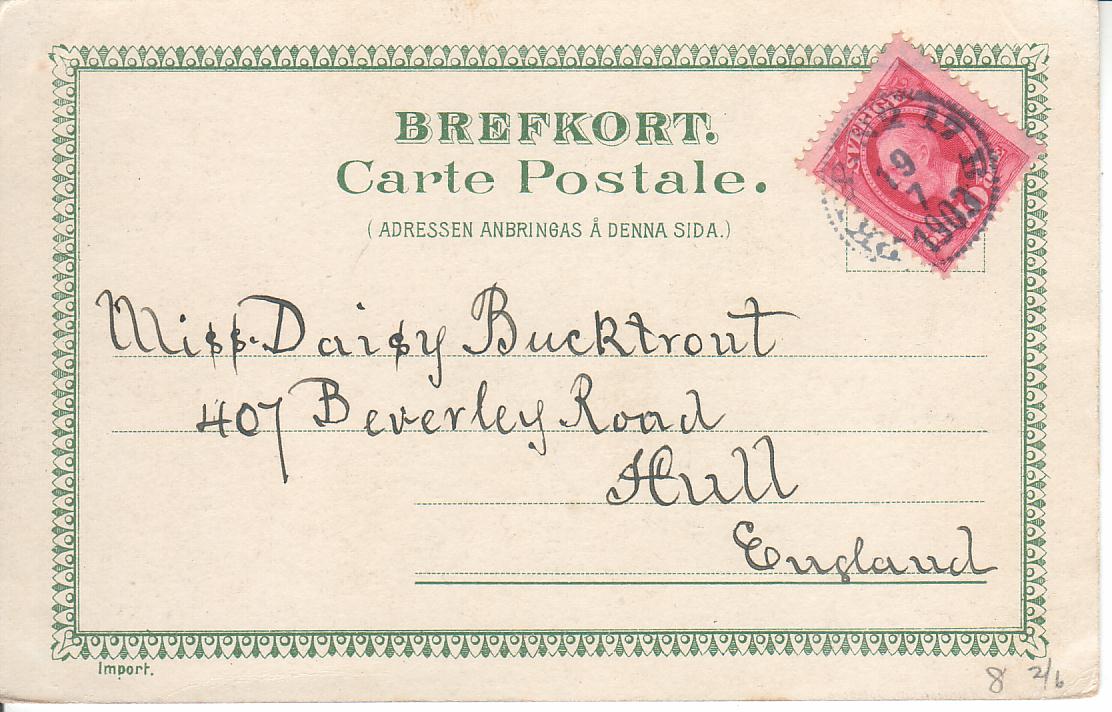 BREFKORT.
Carte Postale.
(ADRESSEN ANBRINGAS Å DENNA SIDA.)
SVERIGE
19
7
1903
Miss. Daisy Bucktrout
407 Beverley Road
Hull
England
Import.
8 2/6